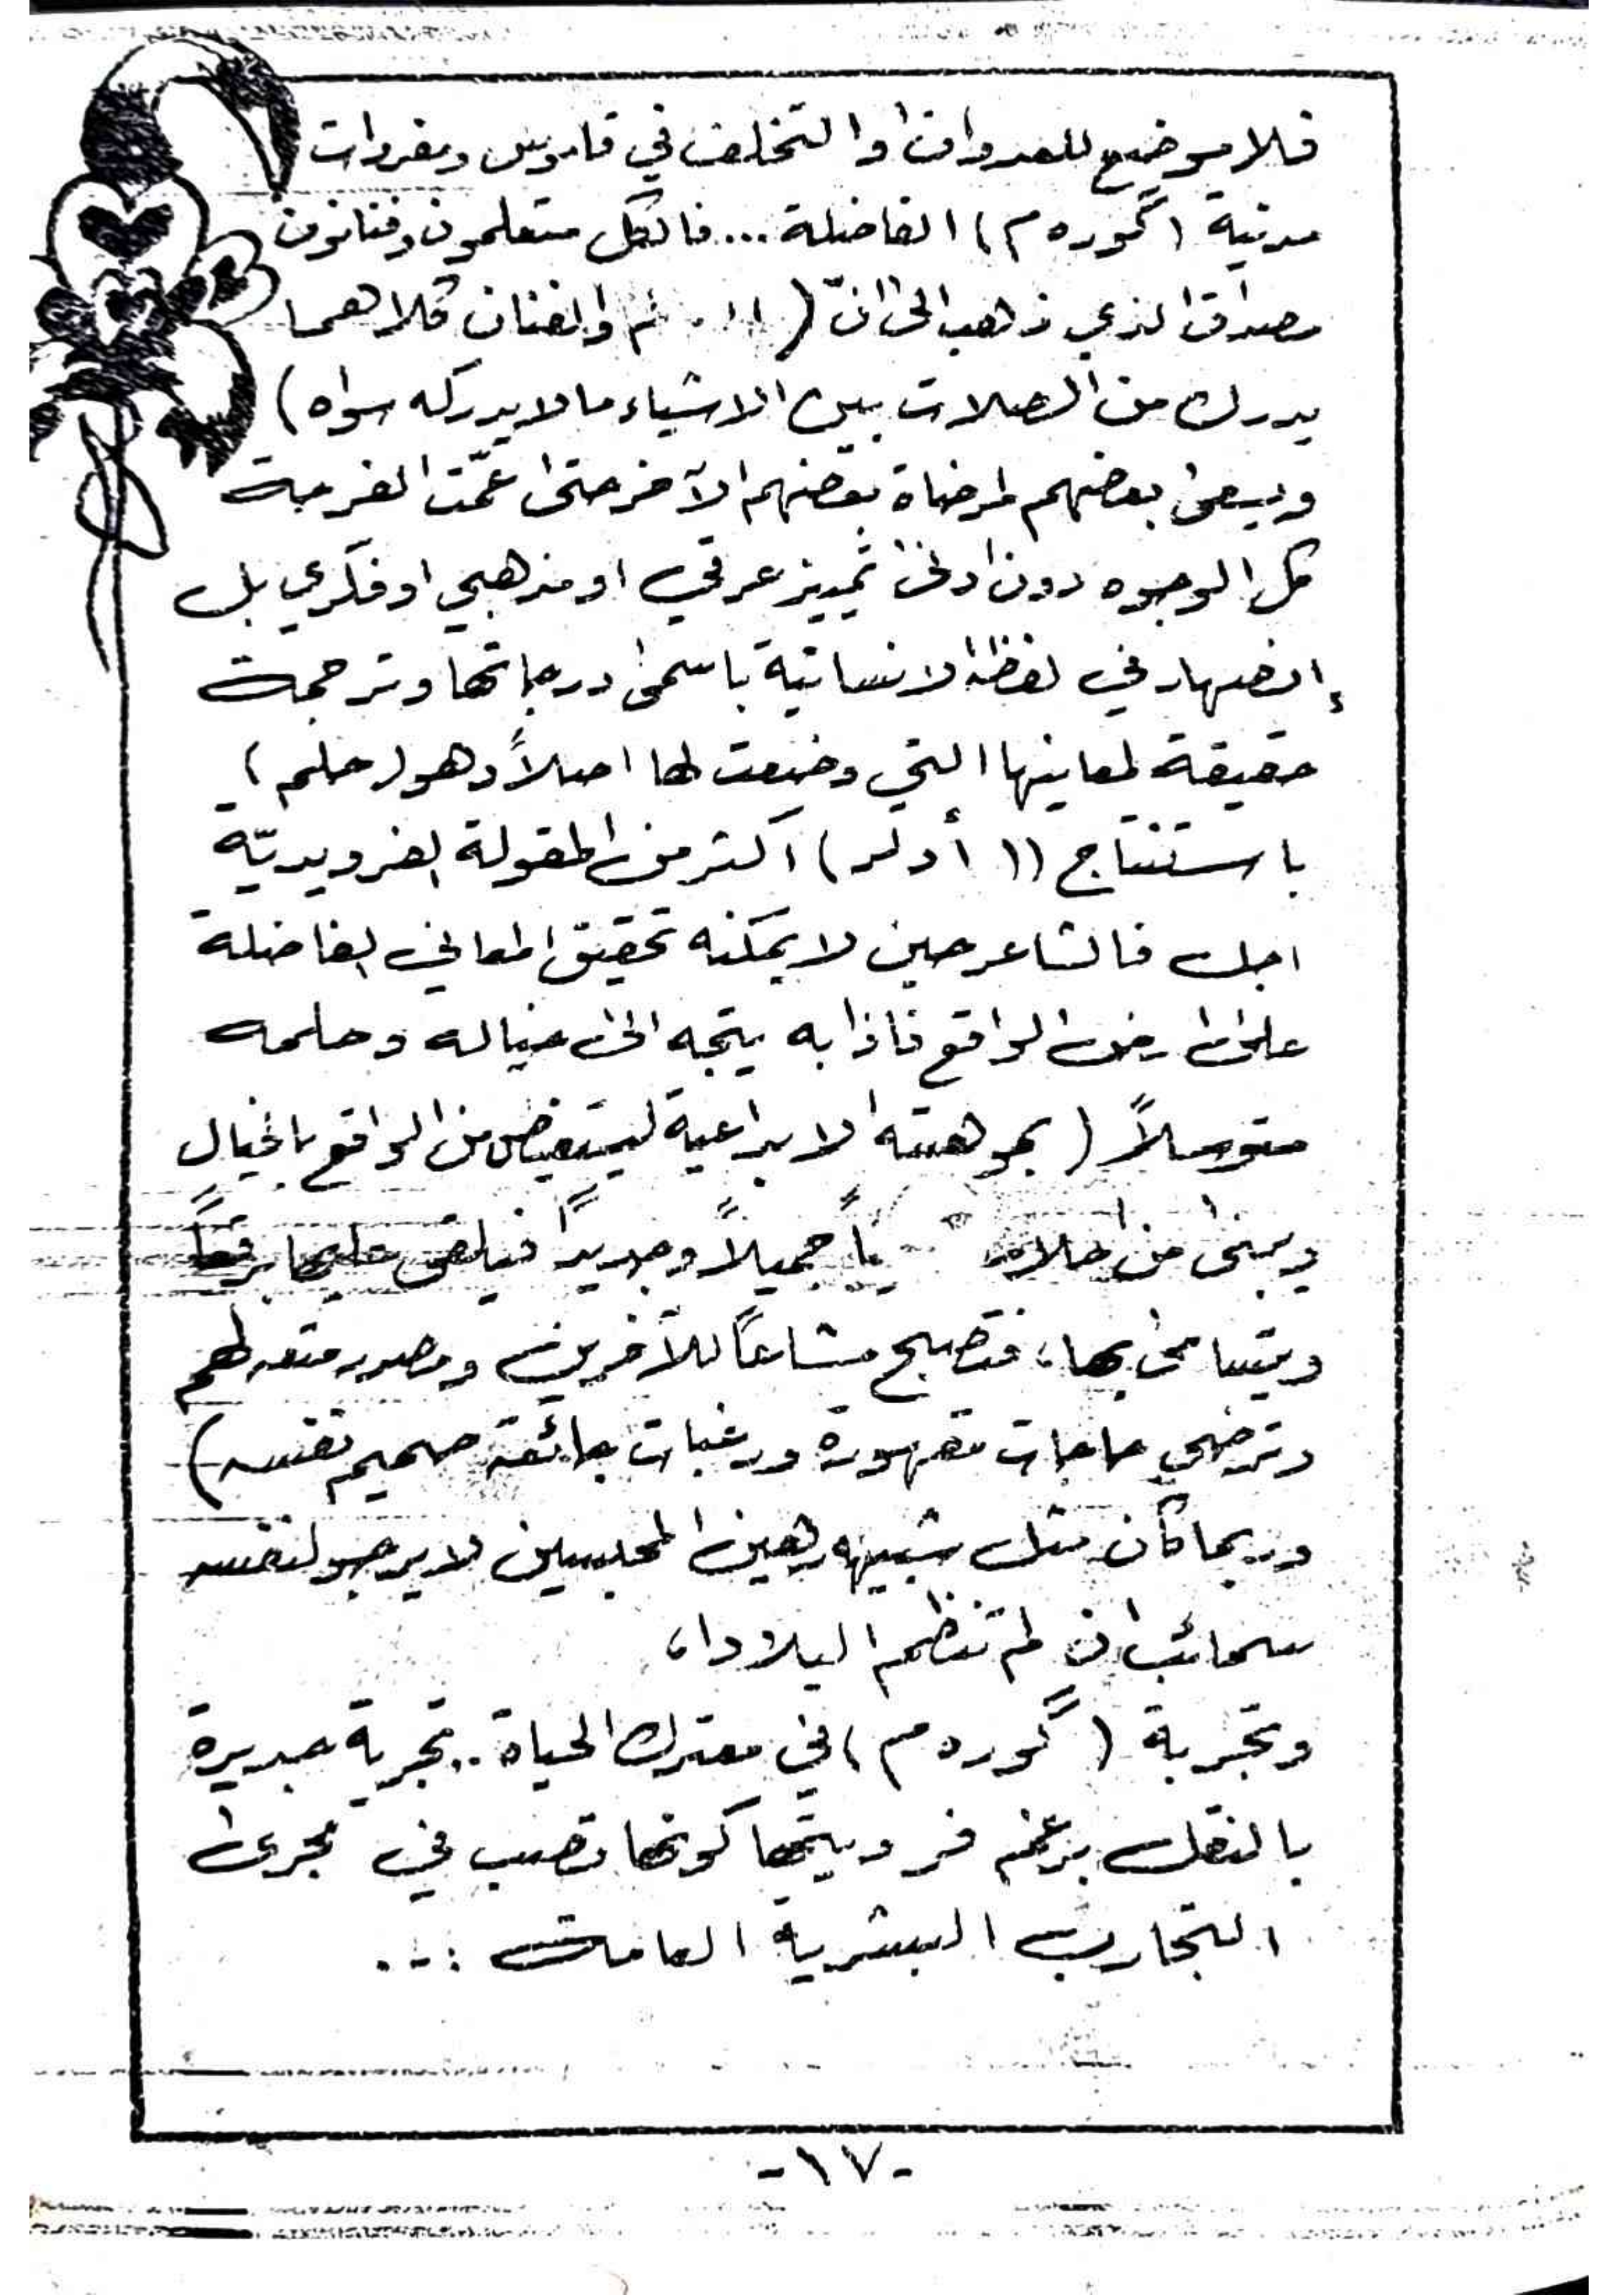 فلا موضع للعدوان او التخلف في قاموس ومفردات
مدنية (گوره م) الفاضلة ... فالكل متعلمون وفنانون
مصداق الذي ذهب الى انّ ( والفنان كلاهما
يدرك من الصلات بين الاشياء ما لا يدركه سواه)
ويسعى بعضهم لمرضاة بعضهم الآخر حتى عمّت الفرحة
كل الوجوه دون ادنى تمييز عرقي او مذهبي او فكري بل
إنصهار في لفظة الانسانية باسمى درجاتها وترجمة
حقيقة لمعاينها التي وضعت لها اصلاً وهو (حلم)
باستنتاج ((أدلر) اكثر من المقولة الفرويديّة
اجل فالشاعر حين لا يمكنه تحقيق المعاني الفاضلة
على ارض الواقع فاذا به يتجه الى خياله وحلمه
متوسلاً (بموهبته الابداعية ليستعيض من الواقع بالخيال
ويبني من احلامه جميلاً وجديداً فيلقى عليها برقعاً
ويتسامى بها، فتصبح مشاعاً للآخرين ومصدر متعة لهم
وترضي حاجات مقهورة ورغبات جائعة صميم نفسه)
وربما كان مثل شبيهه رهين المحبسين لا يرجو لنفسه
سحائب ان لم تنظم البلادا،
وتجربة (گوره م) في معترك الحياة.. تجربة جديرة
بالنقل برغم فرديتها كونها تصب في مجرى
التجارب البشرية العامة ...
-١٧-